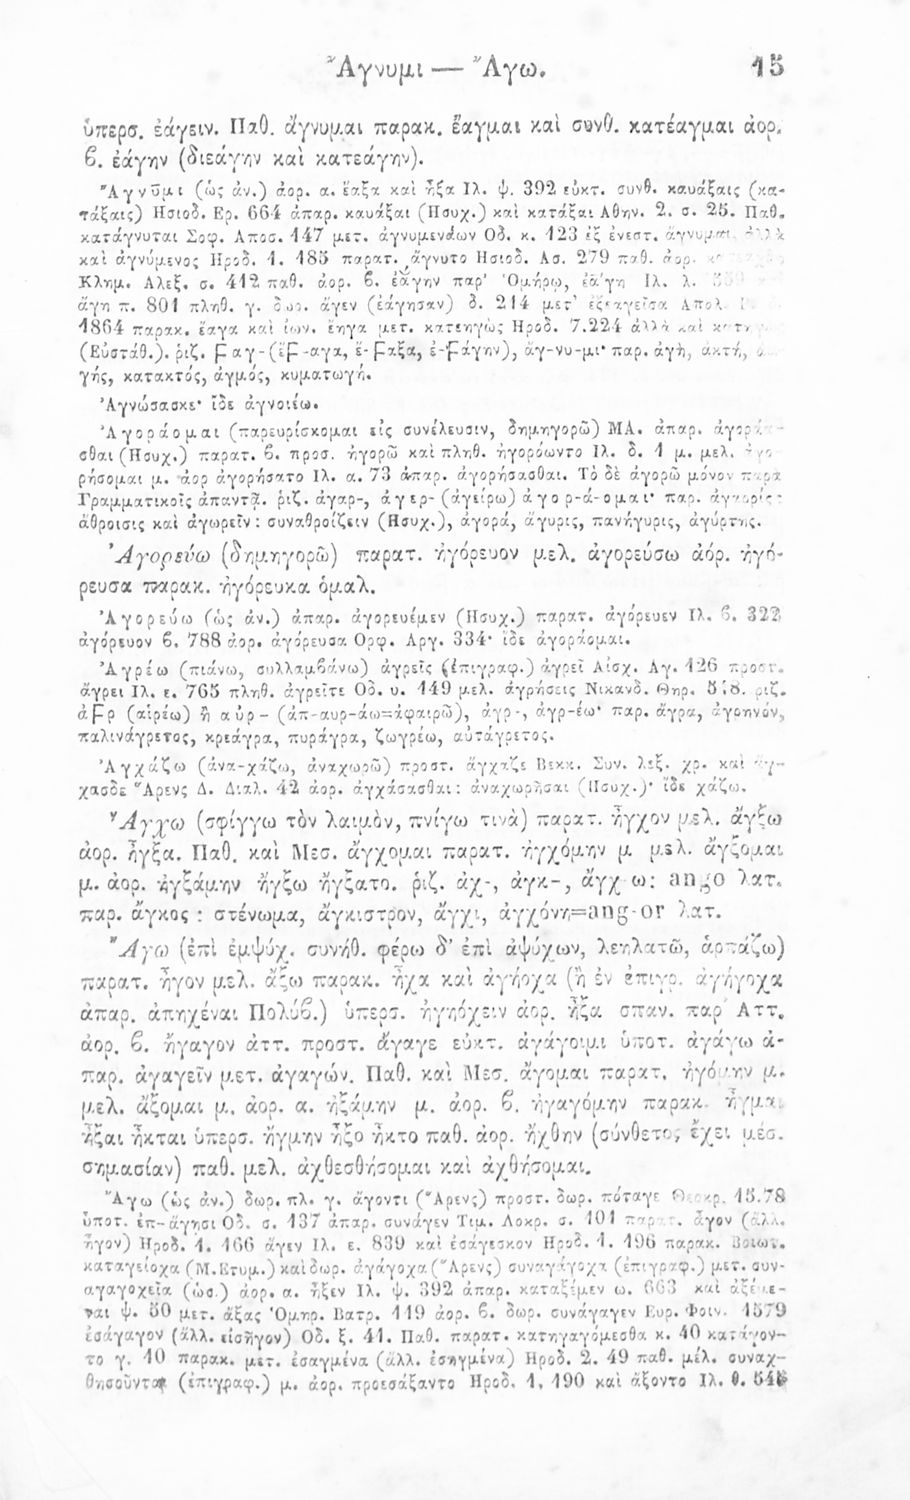 Ἄγνυμι — Ἄγω. 15
ὑπερσ. ἐάγειν. Παθ. ἄγνυμαι παρακ. ἔαγμαι καὶ συνθ. κατέαγμαι ἀορ.
ϐ. ἐάγην (διεάγην καὶ κατεάγην).
Ἄγνῡμι (ὡς ἀν.) ἀορ. α. ἔαξα καὶ ἦξα Ιλ. ψ. 392 εὐκτ. συνθ. καυάξαις (κα-
τάξαις) Ησιοδ. Ερ. 664 ἀπαρ. καυάξαι (Ησυχ.) καὶ κατάξαι Αθην. 2. σ. 25. Παθ.
κατάγνυται Σοφ. Αποσ. 147 μετ. ἀγνυμενάων Οδ. κ. 123 ἐξ ἐνεστ. ἄγνυμαι, ἀλλὰ
καὶ ἀγνύμενος Ηροδ. 1. 185 παρατ. ἄγνυτο Ησιοδ. Ασ. 279 παθ. ἀορ.
Κλημ. Αλεξ. σ. 412 παθ. ἀορ. ϐ. ἐάγην παρ' Ὁμήρῳ, ἐᾱ́γη Ιλ. λ. 559
ἄγη π. 801 πληθ. γ. δωρ. ἄγεν (ἐάγησαν) δ. 214 μετ' ἐξεαγεῖσα Απολ.
1864 παρακ. ἔαγα καὶ ἰων. ἔηγα μετ. κατεηγὼς Ηροδ. 7.224 ἀλλὰ καὶ
(Εὐστάθ.). ῥιζ. Ϝαγ-(ἐϜ-αγα, ἔ-Ϝαξα, ἐ-Ϝάγην), ἄγ-νυ-μι· παρ. ἀγὴ, ἀκτή,
γής, κατακτός, ἀγμός, κυματωγή.
Ἀγνώσασκε· ἴδε ἀγνοιέω.
Ἀγοράομαι (παρευρίσκομαι εἰς συνέλευσιν, δημηγορῶ) ΜΑ. ἀπαρ. ἀγορά-
σθαι (Ησυχ.) παρατ. ϐ. προσ. ἠγορῶ καὶ πληθ. ἠγορόωντο Ιλ. δ. 1 μ. μελ. ἀγο-
ρήσομαι μ. ἀορ ἀγορήσατο Ιλ. α. 73 ἀπαρ. ἀγορήσασθαι. Τὸ δὲ ἀγορῶ μόνον παρὰ
Γραμματικοῖς ἀπαντᾷ. ῥιζ. ἀγαρ-, ἀγερ- (ἀγείρω) ἀγορ-ά-ομαι· παρ. ἀγαορίς:
ἄθροισις καὶ ἀγωρεῖν: συναθροίζειν (Ησυχ.), ἀγορά, ἄγυρις, πανήγυρις, ἀγύρτης.
Ἀγορεύω (δημηγορῶ) παρατ. ἠγόρευον μελ. ἀγορεύσω ἀόρ. ἠγό-
ρευσα παρακ. ἠγόρευκα ὁμαλ.
Ἀγορεύω (ὡς ἀν.) ἀπαρ. ἀγορευέμεν (Ησυχ.) παρατ. ἀγόρευεν Ιλ. ϐ. 322
ἀγόρευον ϐ. 788 ἀορ. ἀγόρευσα Ορφ. Αργ. 334· ἴδε ἀγοράομαι.
Ἀγρέω (πιάνω, συλλαμϐάνω) ἀγρεῖς (ἐπιγραφ.) ἀγρεῖ Αἰσχ. Αγ. 126 προστ.
ἄγρει Ιλ. ε. 765 πληθ. ἀγρεῖτε Οδ. υ. 149 μελ. ἀγρήσεις Νικανδ. Θηρ. ῥιζ.
ἀϜρ (αἱρέω) ἢ αὐρ- (ἀπ-αυρ-άω=ἀφαιρῶ), ἀγρ-, ἀγρ-έω· παρ. ἄγρα, ἀγρηνόν,
παλινάγρετος, κρεάγρα, πυράγρα, ζωγρέω, αὐτάγρετος.
Ἀγχάζω (ἀνα-χάζω, ἀναχωρῶ) προστ. ἄγχαζε Βεκκ. Συν. λεξ. χρ. καὶ ἄγ-
χασδε Ἄρενς Δ. Διαλ. 42 ἀορ. ἀγχάσασθαι: ἀναχωρῆσαι (Ησυχ.)· ἴδε χάζω.
Ἄγχω (σφίγγω τὸν λαιμὸν, πνίγω τινὰ) παρατ. ἦγχον μελ. ἄγξω
ἀορ. ἦγξα. Παθ. καὶ Μεσ. ἄγχομαι παρατ. ἠγχόμην μ μελ. ἄγξομαι
μ. ἀορ. ἠγξάμην ἤγξω ἤγξατο. ῥιζ. ἀχ-, ἀγκ-, ἄγχ ω: ango λατ.
παρ. ἄγκος : στένωμα, ἄγκιστρον, ἄγχι, ἀγχόνη=ang-or λατ.
Ἄγω (ἐπὶ ἐμψύχ. συνήθ. φέρω δ' ἐπὶ ἀψύχων, λεηλατῶ, ἁρπάζω)
παρατ. ἦγον μελ. ἄξω παρακ. ἦχα καὶ ἀγήοχα (ἢ ἐν ἐπιγρ. ἀγήγοχα
ἀπαρ. ἀπηχέναι Πολύϐ.) ὑπερσ. ἠγηόχειν ἀορ. ἦξα σπαν. παρ' Αττ.
ἀορ. ϐ. ἤγαγον ἀττ. προστ. ἄγαγε εὐκτ. ἀγάγοιμι ὑποτ. ἀγάγω ἀ-
παρ. ἀγαγεῖν μετ. ἀγαγών. Παθ. καὶ Μεσ. ἄγομαι παρατ. ἠγόμην μ.
μελ. ἄξομαι μ. ἀορ. α. ἠξάμην μ. ἀορ. ϐ. ἠγαγόμην παρακ. ἦγμαι
ἦξαι ἦκται ὑπερσ. ἤγμην ἦξο ἦκτο παθ. ἀορ. ἤχθην (σύνθετον, ἔχει μέσ.
σημασίαν) παθ. μελ. ἀχθεσθήσομαι καὶ ἀχθήσομαι.
Ἄγω (ὡς ἀν.) δωρ. πλ. γ. ἄγοντι (Ἄρενς) προστ. δωρ. πόταγε Θεοκρ. 15.78
ὑποτ. ἐπ-άγησι Οδ. σ. 137 ἀπαρ. συνάγεν Τιμ. Λοκρ. σ. 101 παρατ. ἆγον (ἀλλ.
ἦγον) Ηροδ. 1. 166 ἄγεν Ιλ. ε. 839 καὶ ἐσάγεσκον Ηροδ. 1. 196 παρακ. Βοιωτ.
καταγείοχα (Μ.Ετυμ.) καὶ δωρ. ἀγάγοχα (Ἄρενς) συναγάγοχα (ἐπιγραφ.) μετ. συν-
αγαγοχεῖα (ὡσ.) ἀορ. α. ἦξεν Ιλ. ψ. 392 ἀπαρ. καταξέμεν ω. 663 καὶ ἀξέμε-
ναι ψ. 50 μετ. ἄξας Ὁμηρ. Βατρ. 119 ἀορ. ϐ. δωρ. συνάγαγεν Ευρ. Φοιν. 1579
ἐσάγαγον (ἀλλ. εἰσῆγον) Οδ. ξ. 41. Παθ. παρατ. κατηγαγόμεσθα κ. 40 κατάγον-
το γ. 10 παρακ. μετ. ἐσαγμένα (ἀλλ. ἐσηγμένα) Ηροδ. 2. 49 παθ. μέλ. συναχ-
θησοῦνται (ἐπιγραφ.) μ. ἀορ. προεσάξαντο Ηροδ. 1. 190 καὶ ἄξοντο Ιλ. θ. 545